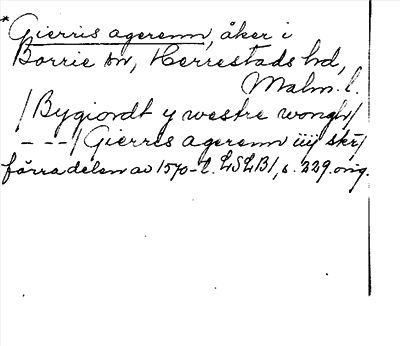 *Gierris agerenn, åker i
Borrie sn, Herrestads hd,
Malm. l.
/Bygiordt y westre wongh/
---/Gierris agerenn iiij skr/
förra delen av 1570-t. LSLB1, s. 229. orig.